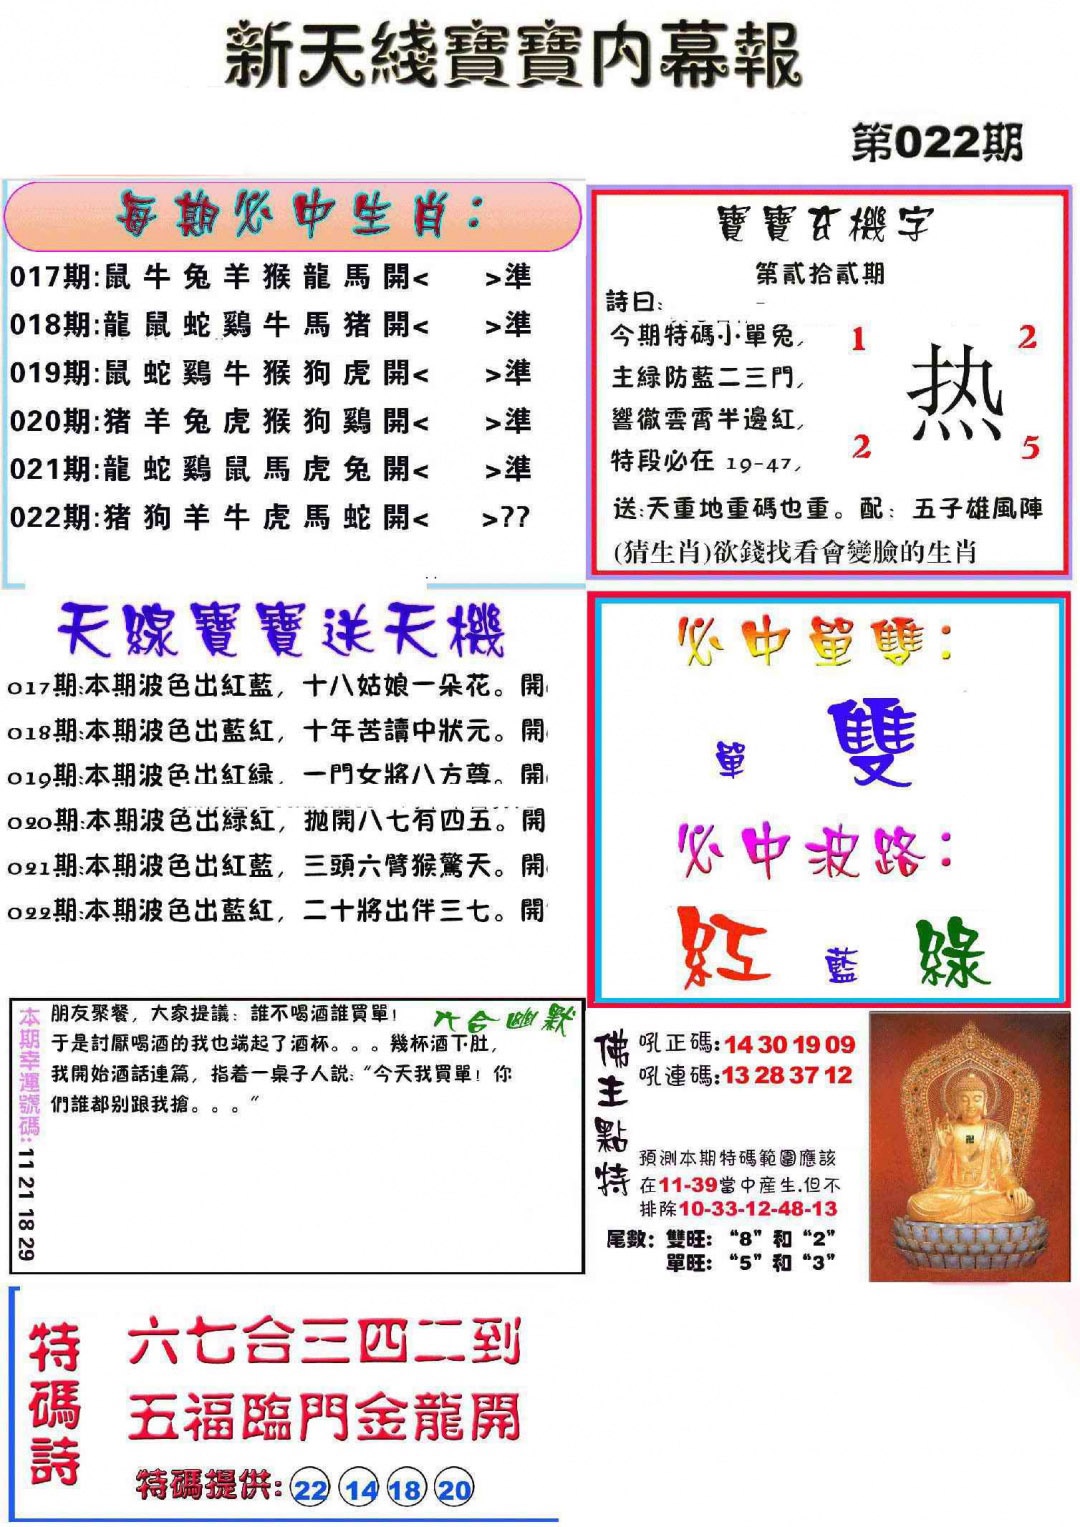 新天綫寶寶内幕報
第022期
每期必中生肖：
017期:鼠牛兔羊猴龍馬開<　>準
018期:龍鼠蛇鷄牛馬猪開<　>準
019期:鼠蛇鷄牛猴狗虎開<　>準
020期:猪羊兔虎猴狗鷄開<　>準
021期:龍蛇鷄鼠馬虎兔開<　>準
022期:猪狗羊牛虎馬蛇開<　>??
寶寶玄機字
第貳拾貳期
詩曰:
今期特碼小單兔,
主緑防藍二三門,
響徹雲霄半邊紅,
特段必在 19-47,
1　2
热
2　5
送:天重地重碼也重。配：五子雄風陣
(猜生肖)欲錢找看會變臉的生肖
天線寶寶送天機
017期:本期波色出紅藍，十八姑娘一朵花。開
018期:本期波色出藍紅，十年苦讀中狀元。開
019期:本期波色出紅緑，一門女將八方尊。開
020期:本期波色出緑紅，抛開八七有四五。開
021期:本期波色出紅藍，三頭六臂猴驚天。開
022期:本期波色出藍紅，二十將出伴三七。開
必中單雙：
單　雙
必中波路：
紅　藍　綠
本期幸運號碼:11 21 18 29
六合幽默
朋友聚餐，大家提議：誰不喝酒誰買單！
于是討厭喝酒的我也端起了酒杯。。。幾杯酒下肚，
我開始酒話連篇，指着一桌子人説：“今天我買單！你
們誰都别跟我搶。。。”
佛主點特
吼正碼:14 30 19 09
吼連碼:13 28 37 12
預測本期特碼範圍應該
在11-39當中産生.但不
排除10-33-12-48-13
尾數：雙旺：“8”和“2”
單旺：“5”和“3”
特碼詩
六七合三四二到
五福臨門金龍開
特碼提供: 22 14 18 20